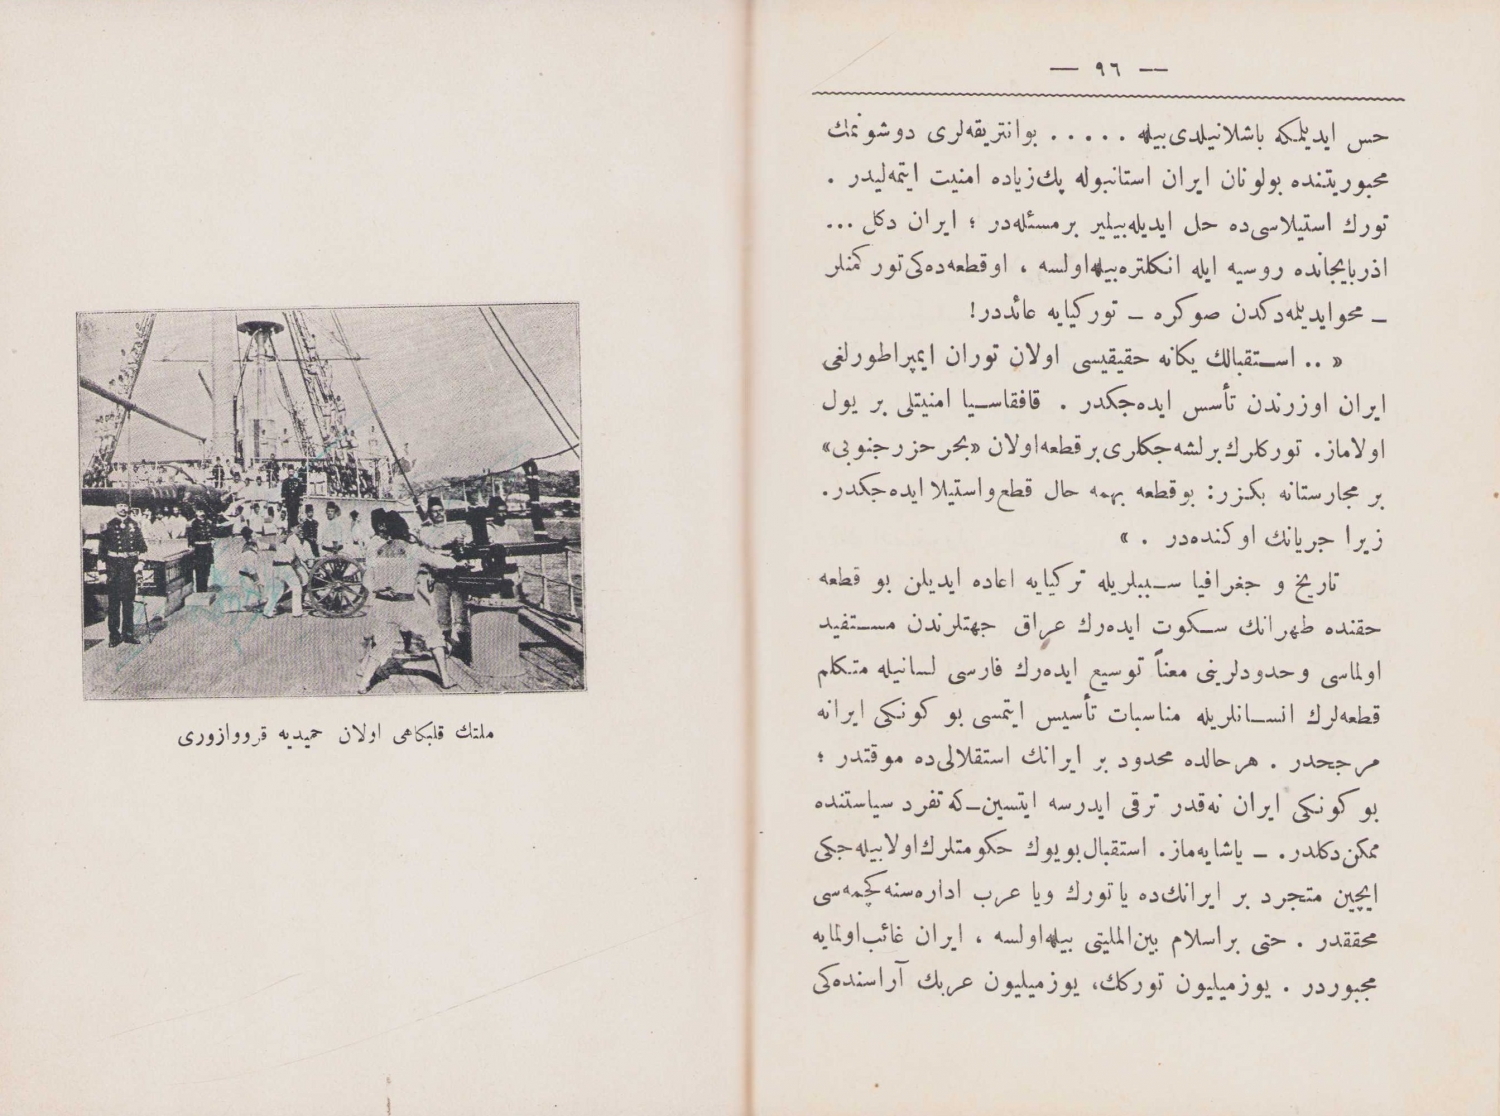 — ٩٦ —
حس ایدیلمكه باشلانیلدی بیله ..... بو انتریقه‌لری دوشونمك
مجبوریتنده بولونان ایران استانبوله پك زیاده امنیت ایتمه‌لیدر .
تورك استیلاسی‌ده حل ایدیله‌بیلیر بر مسئله‌در ؛ ایران دكل ...
اذربایجانده روسیه ایله انكلتره بیله اولسه ، او قطعه‌ده‌كی توركمنلر
ـ محو ایدیلمه‌دكدن صوكره ـ توركیایه عائددر!
« .. استقبالك یكانه حقیقیسی اولان توران ایمپراطورلغی
ایران اوزرندن تأسس ایده‌جكدر . قافقاسیا امنیتلی بر یول
اولاماز. توركلرك برلشه‌جكلری بر قطعه اولان «بحر حزر جنوبی»
بر مجارستانه بكزر: بو قطعه بهمه حال قطع و استیلا ایده‌جكدر.
زیرا جریانك اوكنده‌در . »
تاریخ و جغرافیا سببلریله تركیایه اعاده ایدیلن بو قطعه
حقنده طهرانك سكوت ایده‌رك عراق جهتلرندن مستفید
اولماسی و حدودلرینی معناً توسیع ایده‌رك فارسی لسانیله متكلم
قطعه‌لرك انسانلریله مناسبات تأسیس ایتمسی بو كونكی ایرانه
مرجحدر . هر حالده محدود بر ایرانك استقلالی‌ده موقتدر ؛
بو كونكی ایران نه‌قدر ترقی ایدرسه ایتسین ـ كه تفرد سیاستنده
ممكن دكلدر. ـ یاشایه‌ماز. استقبال بویوك حكومتلرك اولابیله‌جكی
ایچین متجرد بر ایرانك‌ده یا تورك ویا عرب اداره‌سنه كچمه‌سی
محققدر . حتی بر اسلام بین‌المللیتی بیله اولسه ، ایران غائب اولمایه
مجبوردر . یوز میلیون توركك، یوز میلیون عربك آراسنده‌كی
ملتك قلبكاهی اولان حمیدیه قرووازوری